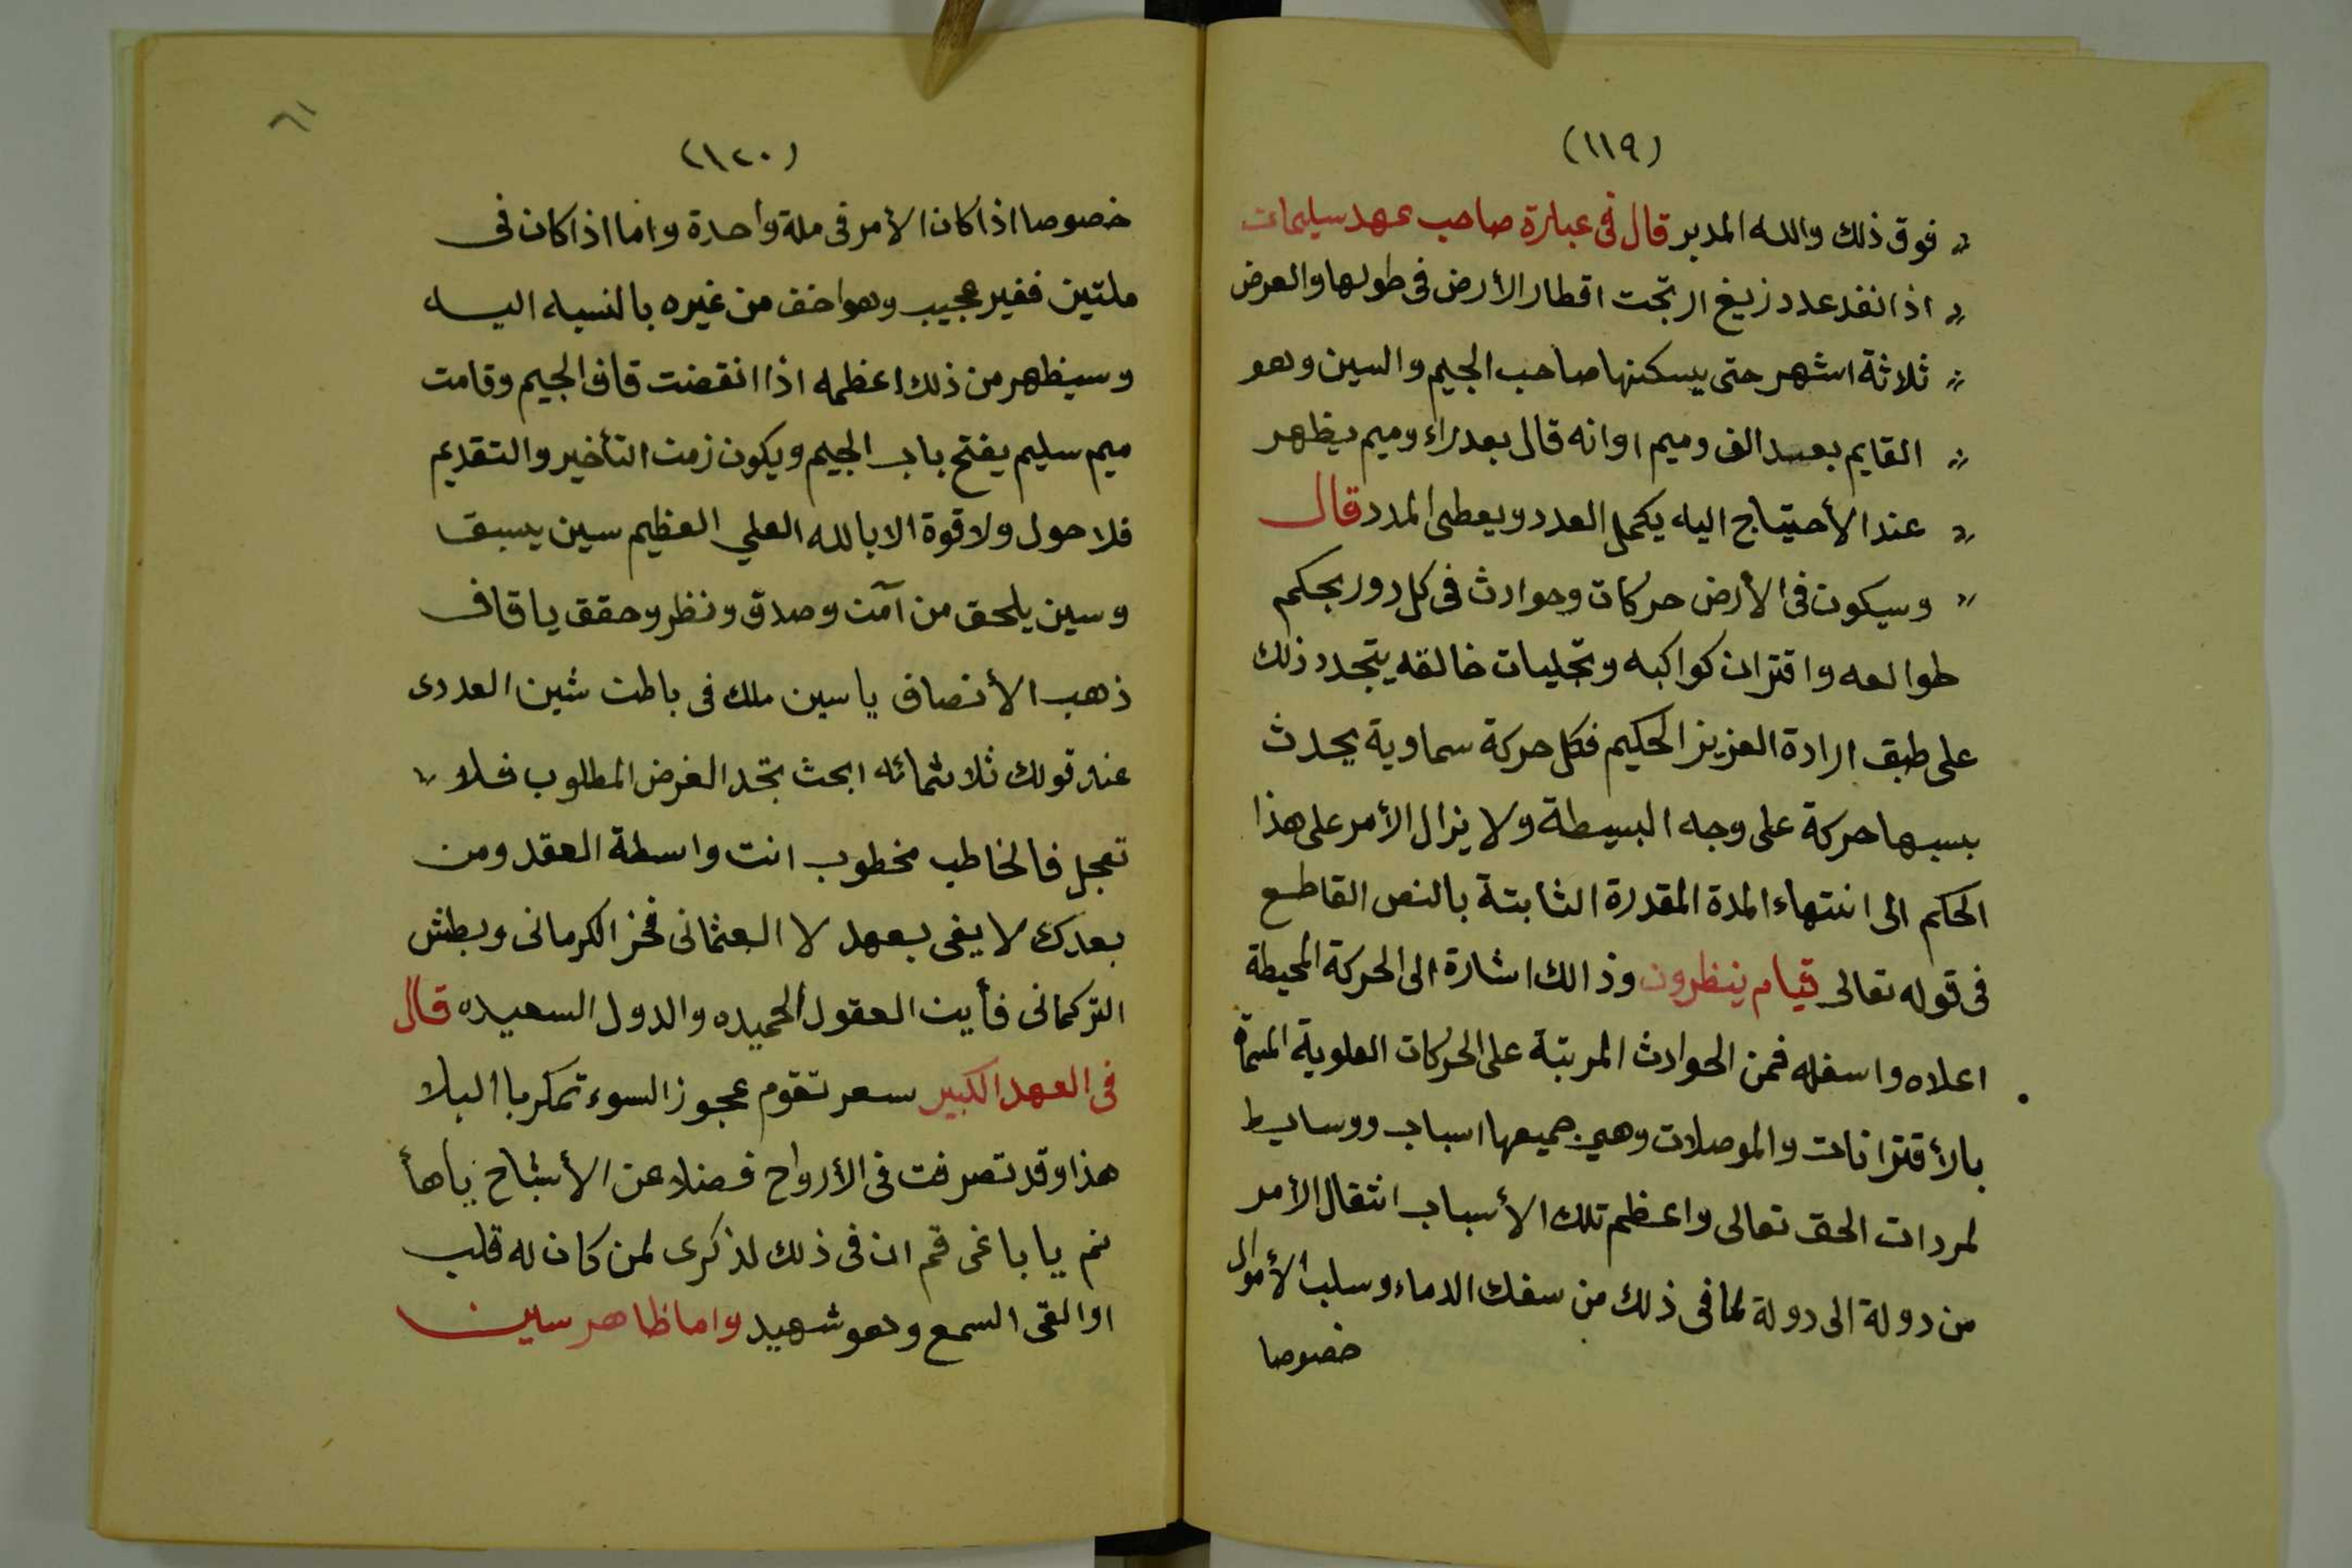 (١١٩)
〃 فوق ذلك والله المدبر قال فى عبارة صاحب عهد سليمات
〃 اذا نفد عدد زيغ ارتجت اقطار الأرض فى طولها والعرض
〃 ثلاثة اشهر حتى يسكنها صاحب الجيم والسين وهو
〃 القايم بعد الف وميم اوانه قال بعد راء وميم يظهر
〃 عند الأحتياج اليه يكمل العدد ويعطى المدد قال
〃 وسيكون فى الأرض حركات وحوادث فى كل دور بحكم
طوالعه واقتران كواكبه وتجليات خالقه يتجدد ذلك
على طبق ارادة العزيز الحكيم فكل حركة سماوية يحدث
بسببها حركة على وجه البسيطة ولا يزال الأمر على هذا
الحكم الى انتهاء المدة المقدرة الثابتة بالنص القاطع
فى قوله تعالى قيام ينظرون وذالك اشارة الى الحركة المحيطة
اعلاه واسفله فمن الحوادث المرتبة على الحركات العلوية المسماة
بالأقترانات والموصلات وهي جميعها اسباب ووسايط
لمردات الحق تعالى واعظم تلك الأسباب انتقال الأمر
من دولة الى دولة لما فى ذلك من سفك الدماء وسلب الأموال
خصوصا
(١٢٠)
٦١
خصوصا اذا كان الأمر فى ملة واحدة واما اذا كان فى
ملتين فغير عجيب وهو اخف من غيره بالنسبه اليه
وسيظهر من ذلك اعظمه اذا انقضت قاف الجيم وقامت
ميم سليم يفتح باب الجيم ويكون زمن التأخير والتقديم
فلا حول ولا قوة الا بالله العلي العظيم سين يسبق
وسين يلحق من آمن وصدق ونظر وحقق يا قاف
ذهب الأنصاف يا سين ملك فى باطن شين العددى
عند قولك ثلاثمائه ابحث تجد الغرض المطلوب فلا
تعجل فالخاطب مخطوب انت واسطة العقد ومن
بعدك لا يفى بعهد لا العثمانى فخز الكرمانى وبطش
التركمانى فأين العقول الحميده والدول السعيده قال
فى العهد الكبير سعر تقوم عجوز السوء تمكر با البلا
هذا وقد تصرفت فى الأرواح فضلا عن الأشباح ياهأ
نم يا باغى قم ان فى ذلك لذكرى لمن كان له قلب
او القى السمع وهو شهيد واما ظاهر سين